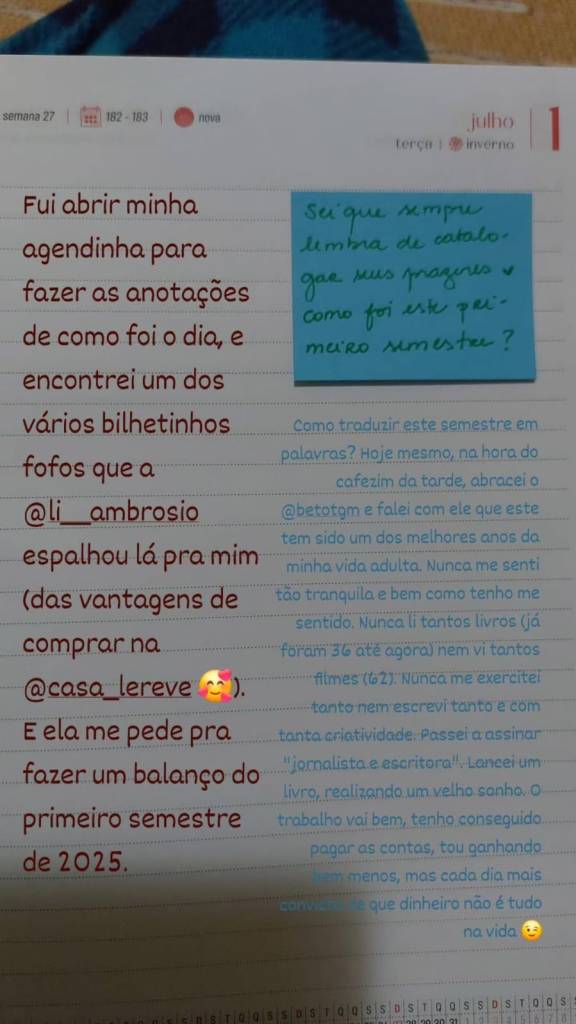 semana 27 | 182 - 183 | nova
julho 1
terça | inverno
Fui abrir minha
agendinha para
fazer as anotações
de como foi o dia, e
encontrei um dos
vários bilhetinhos
fofos que a
@li__ambrosio
espalhou lá pra mim
(das vantagens de
comprar na
@casa_lereve 🥰).
E ela me pede pra
fazer um balanço do
primeiro semestre
de 2025.
Sei que sempre
lembra de catalo-
gar seus prazeres
como foi este pri-
meiro semestre?
Como traduzir este semestre em
palavras? Hoje mesmo, na hora do
cafezim da tarde, abracei o
@betotgm e falei com ele que este
tem sido um dos melhores anos da
minha vida adulta. Nunca me senti
tão tranquila e bem como tenho me
sentido. Nunca li tantos livros (já
foram 36 até agora) nem vi tantos
filmes (62). Nunca me exercitei
tanto nem escrevi tanto e com
tanta criatividade. Passei a assinar
"jornalista e escritora". Lancei um
livro, realizando um velho sonho. O
trabalho vai bem, tenho conseguido
pagar as contas, tou ganhando
bem menos, mas cada dia mais
convicta de que dinheiro não é tudo
na vida 😉
S D S T Q Q S S D S T Q Q S S D S T Q Q S S